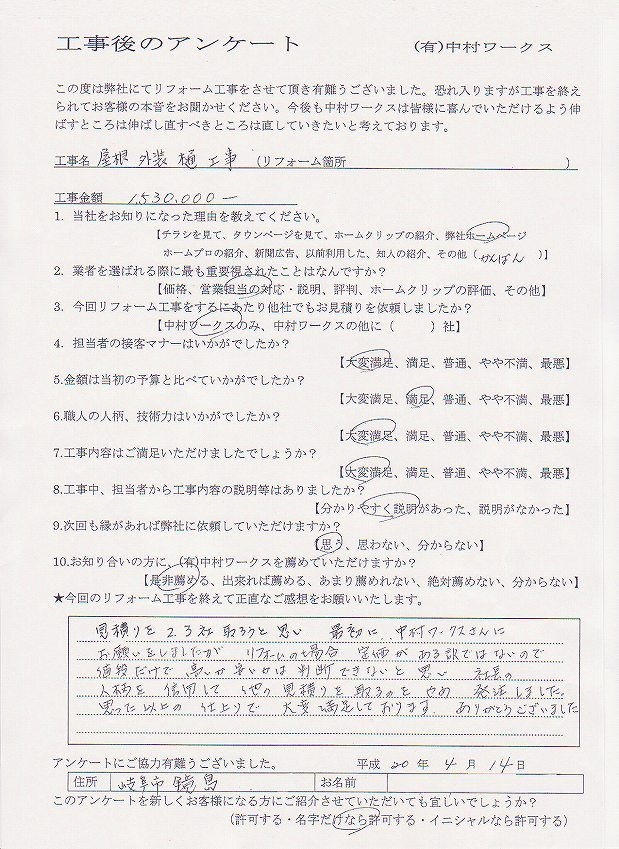 工事後のアンケート (有)中村ワークス
この度は弊社にてリフォーム工事をさせて頂き有難うございました。恐れ入りますが工事を終え
られてお客様の本音をお聞かせください。今後も中村ワークスは皆様に喜んでいただけるよう伸
ばすところは伸ばし直すべきところは直していきたいと考えております。
工事名 屋根 外装 樋 工事 (リフォーム箇所 )
工事金額 1,530,000―
1. 当社をお知りになった理由を教えてください。
【チラシを見て、タウンページを見て、ホームクリップの紹介、弊社ホームページ
ホームプロの紹介、新聞広告、以前利用した、知人の紹介、その他(かんばん )】
2. 業者を選ばれる際に最も重要視されたことはなんですか?
【価格、営業担当の対応・説明、評判、ホームクリップの評価、その他】
3. 今回リフォーム工事をするにあたり他社でもお見積りを依頼しましたか?
【中村ワークスのみ、中村ワークスの他に( )社】
4. 担当者の接客マナーはいかがでしたか?
【大変満足、満足、普通、やや不満、最悪】
5.金額は当初の予算と比べていかがでしたか?
【大変満足、満足、普通、やや不満、最悪】
6.職人の人柄、技術力はいかがでしたか?
【大変満足、満足、普通、やや不満、最悪】
7.工事内容はご満足いただけましたでしょうか?
【大変満足、満足、普通、やや不満、最悪】
8.工事中、担当者から工事内容の説明等はありましたか?
【分かりやすく説明があった、説明がなかった】
9.次回も縁があれば弊社に依頼していただけますか?
【思う、思わない、分からない】
10.お知り合いの方に、(有)中村ワークスを薦めていただけますか?
【是非薦める、出来れば薦める、あまり薦めれない、絶対薦めない、分からない】
★今回のリフォーム工事を終えて正直なご感想をお願いいたします。
見積りを 2.3社 取ろうと思い 最初に 中村ワークスさんに
お願いをしましたが リフォームの場合 定価が ある訳ではないので
値段だけで 高いか安いかは 判断できないと 思い 社長の
人柄を 信用して 他の 見積りを 取るのを やめ 発注しました。
思った以上の 仕上りで 大変満足しております。 ありがとうございました
アンケートにご協力有難うございました。 平成 20 年 4 月 14 日
住所 岐阜市 鏡島 お名前
このアンケートを新しくお客様になる方にご紹介させていただいても宜しいでしょうか?
(許可する・名字だけなら許可する・イニシャルなら許可する)